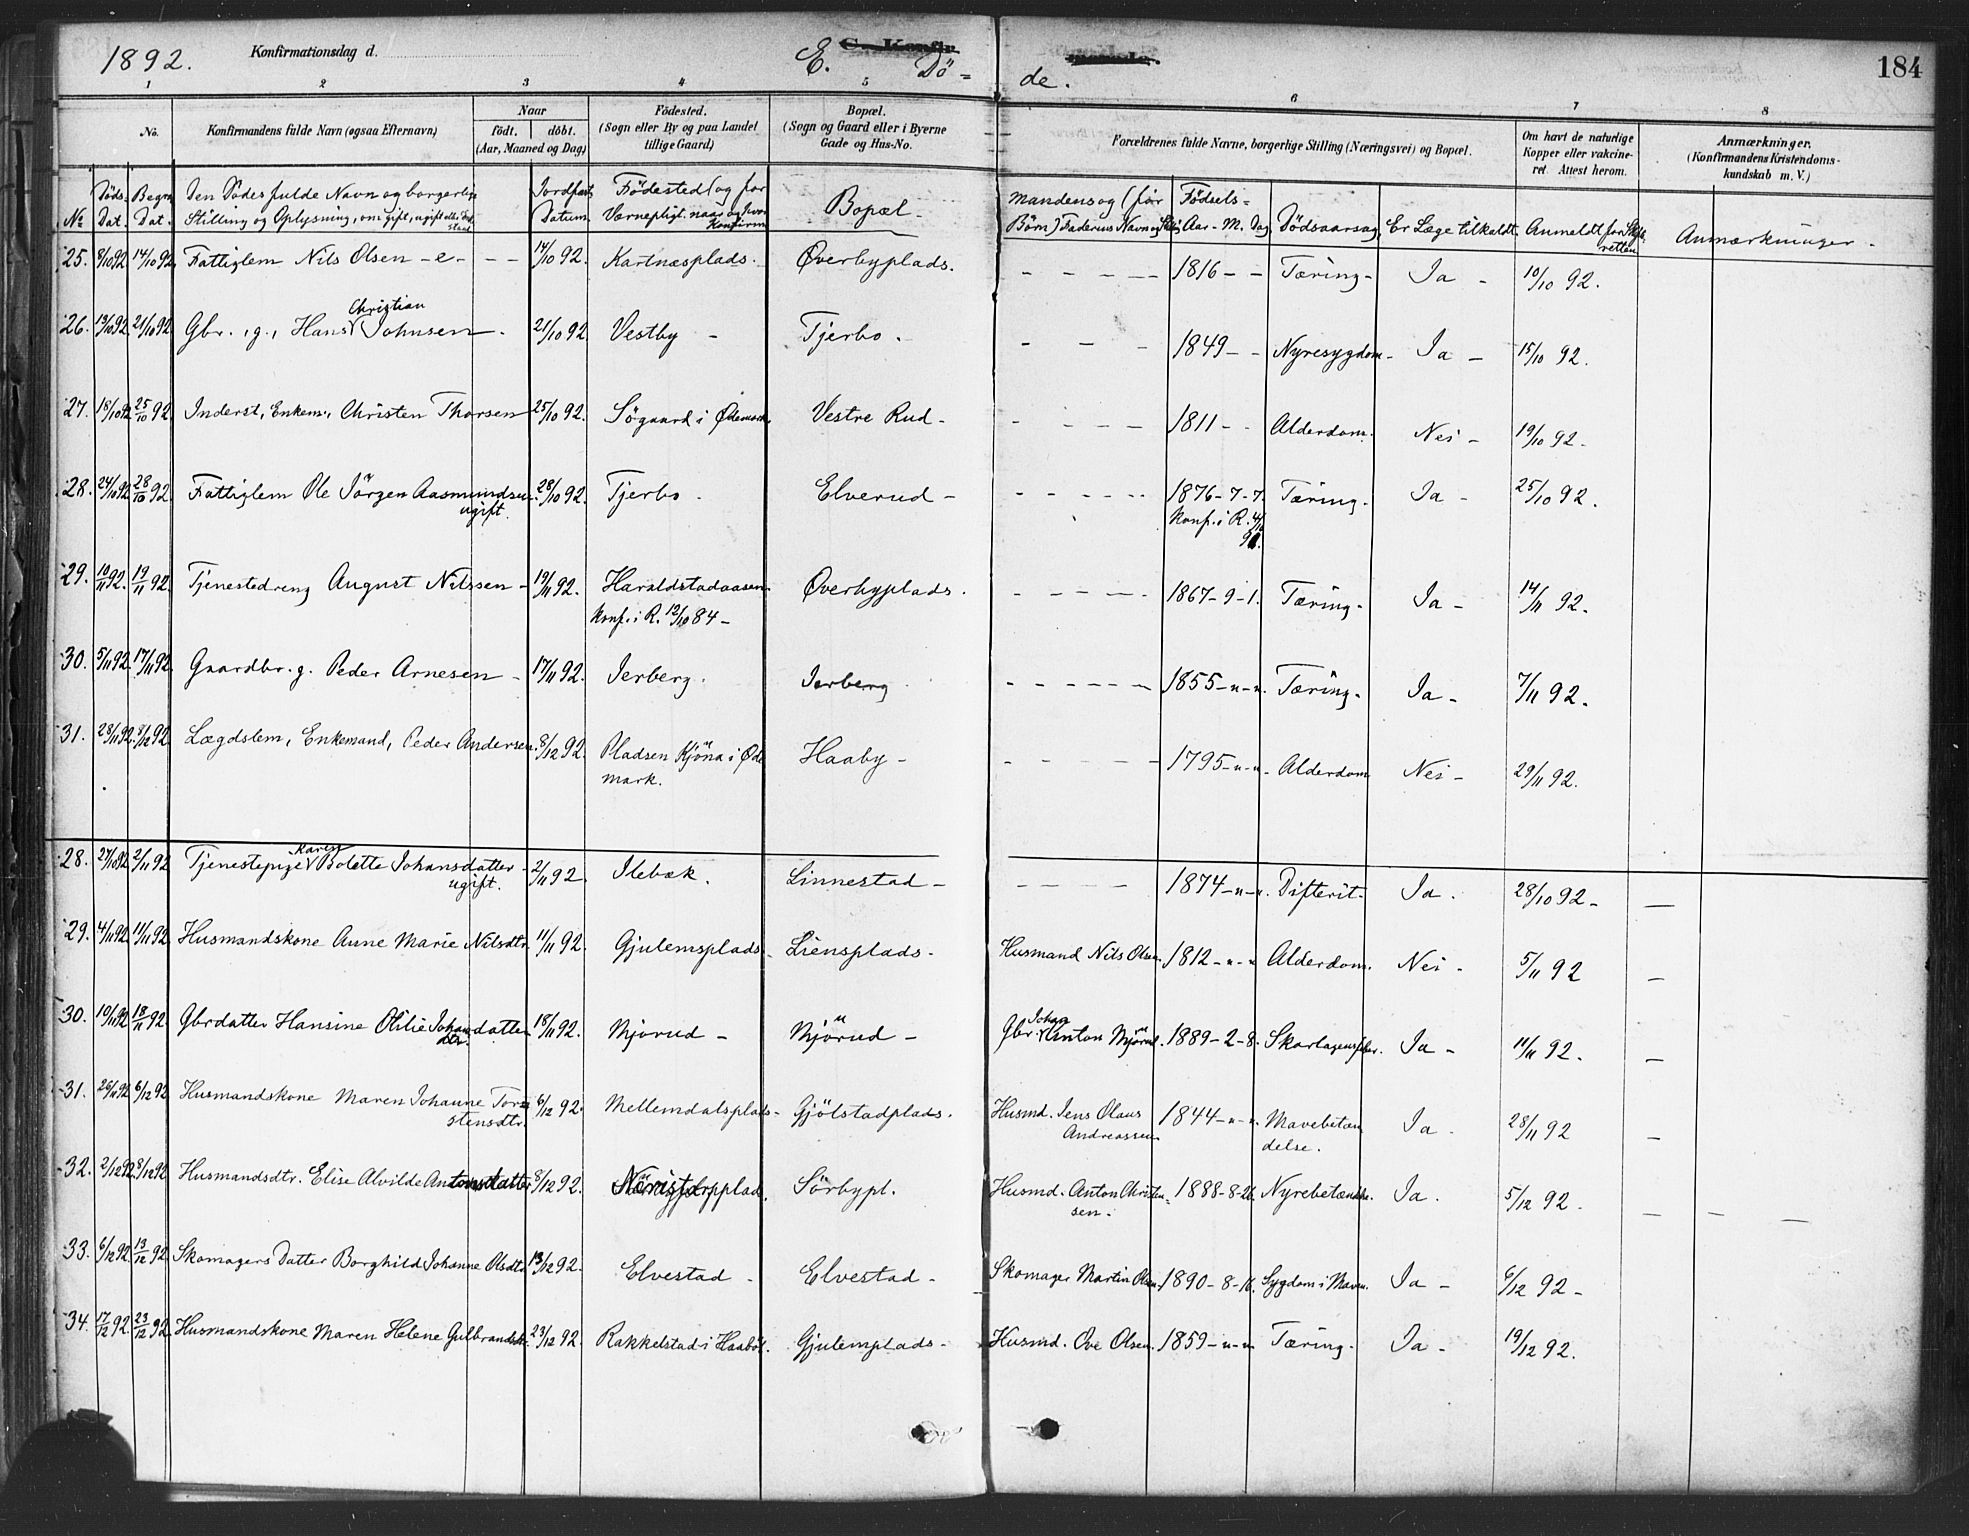 1892. Konfirmationsdag d. E. C. Konfir- Dö- de. 184
1 2 3 4 5 6 7 8
No. Konfirmandens fulde Navn (ogsaa Efternavn) Naar födt. döbt. (Aar, Maaned og Dag) Födested. (Sogn eller By og paa Landet tillige Gaard) Bopæl. (Sogn og Gaard eller i Byerne Gade og Hus-No. Forældrenes fulde Navne, borgerlige Stilling (Næringsvei) og Bopæl. Om havt de naturlige Kopper eller vakcine- ret. Attest herom. Anmærkninger. (Konfirmandens Kristendoms- kundskab m. V.)
No Döds Dat. Begr. Dat. Den Dödes fulde Navn og borgerlig Stilling og Oplysning, om gift, ugift eller Jordfæst Datum Födested (og for Værnepligt. naar og hvor Konfirm Bopæl - Mandens og (for Börn) Faderens Navn og Födsels- Aar - M. Dag Dödsaarsag, Er Læge tilkaldt. Anmeldt for Skifteretten Anmærkninger.
25. 8/10 92 14/10 92 Fattiglem Nils Olsen - e - - - 14/10 92. Kartnæsplads. Øverbyplads. - - - - 1816 - - Tæring - Ia - 10/10 92.
26. 13/10 92 21/10 92 Gbr., g., Hans Christian Johnsen - 21/10 92 Vestby - Tjerbo. - - - 1849 - - Nyresygdom - Ia - 15/10 92.
27. 18/10 92 25/10 92. Inderst, Enkem., Christen Thorsen 25/10 92. Sögaard i Ødemark Vestre Rud - - - - - 1811 - - Alderdom. Nei - 19/10 92.
28. 24/10 92 28/10 92. Fattiglem Ole Jörgen Aasmundsen 28/10 92. Tjerbo - Elverud - - - - - 1876 - 7 - 7. Tæring - Ia - 25/10 92.
ugift. Konf. i R.
29. 10/11 92. 19/11 92. Tjenestedreng August Nilssen - 19/11 92. Haraldstadaasen Øverbyplads. - - - - 1867 - 9 - 1. Tæring - Ia - 14/11 92.
Konf. i R. 12/10 84 -
30. 5/11 92. 17/11 92. Gaardbr. g. Peder Arnesen - 17/11 92. Ierberg. Ierberg - - - - - 1855 - " - ". Tæring - Ia - 7/11 92.
31. 28/11 92. 8/12 92 Lægdslem, Enkemand, Peder Andersen. 8/12 92. Pladsen Kjöna i Øde Haaby - - - - - 1795 - " - " - Alderdom Nei - 29/11 92.
mark.
28. 27/10 92 2/11 92 Tjenestepige Karen Bolette Johansdatter - 2/11 92. Ilebæk. Linnestad - - - - - 1874 - " - ". Difterit - Ia. 28/10 92 - —
ugift.
29. 4/11 92 11/11 92 Husmandskone Anne Marie Nilsdtr. 11/11 92. Gjulemsplads - Liensplads - Husmand Nils Olsen. 1812 - " - " Alderdom. Nei - 5/11 92 —
30. 10/11 92 18/11 92 Gbrdatter Hansine Otilie Johansdatter 18/11 92. Mjörud - Mjörud - Gbr. Johan Anton Mjörud. 1889 - 2 - 8 - Skarlagensfeber. Ia - 11/11 92. —
31. 26/11 92 6/12 92 Husmandskone Maren Johanne Tor= 6/12 92. Mellemdalsplads - Gjölstadplads. Husmd. Jens Olaus 1844 - " - " Mavebetæn Ia - 28/11 92 —
stensdtr. Andreassen delse.
32. 2/12 92. 8/12 92 Husmandsdtr. Elise Alvilde Antonsdatter 8/12 92. Sörbypl. Husmd. Anton Christen- 1888 - 8 - 26. Nyrebetændelse. Ia. 5/12 92. — — —
sen -
33. 6/12 92. 13/12 92 Skomagers Datter Borghild Johanne Olsdtr. 13/12 92 - Elvestad - Elvestad - Skomager Martin Olsen. 1890 - 8 - 16. Sygdom i Maven. Ia - 6/12 92 -
34. 17/12 92. 23/12 92. Husmandskone Maren Helene Gulbrandsdtr. 23/12 92. Rakkelstad i Haaböl. Gjulemplads - Husmd. Ove Olsen. 1859 - " - " Tæring - Ia - 19/12 92.